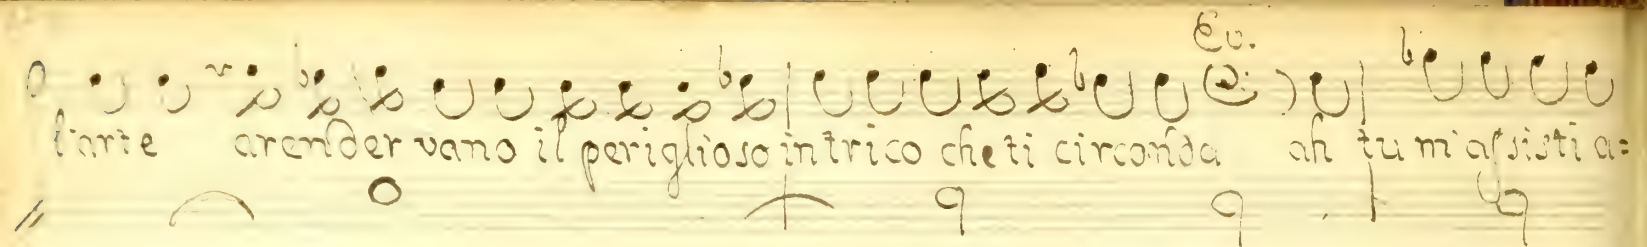 Eu.
l'arte arender vano il periglioso intrico che ti circonda ah tu m'assisti a=